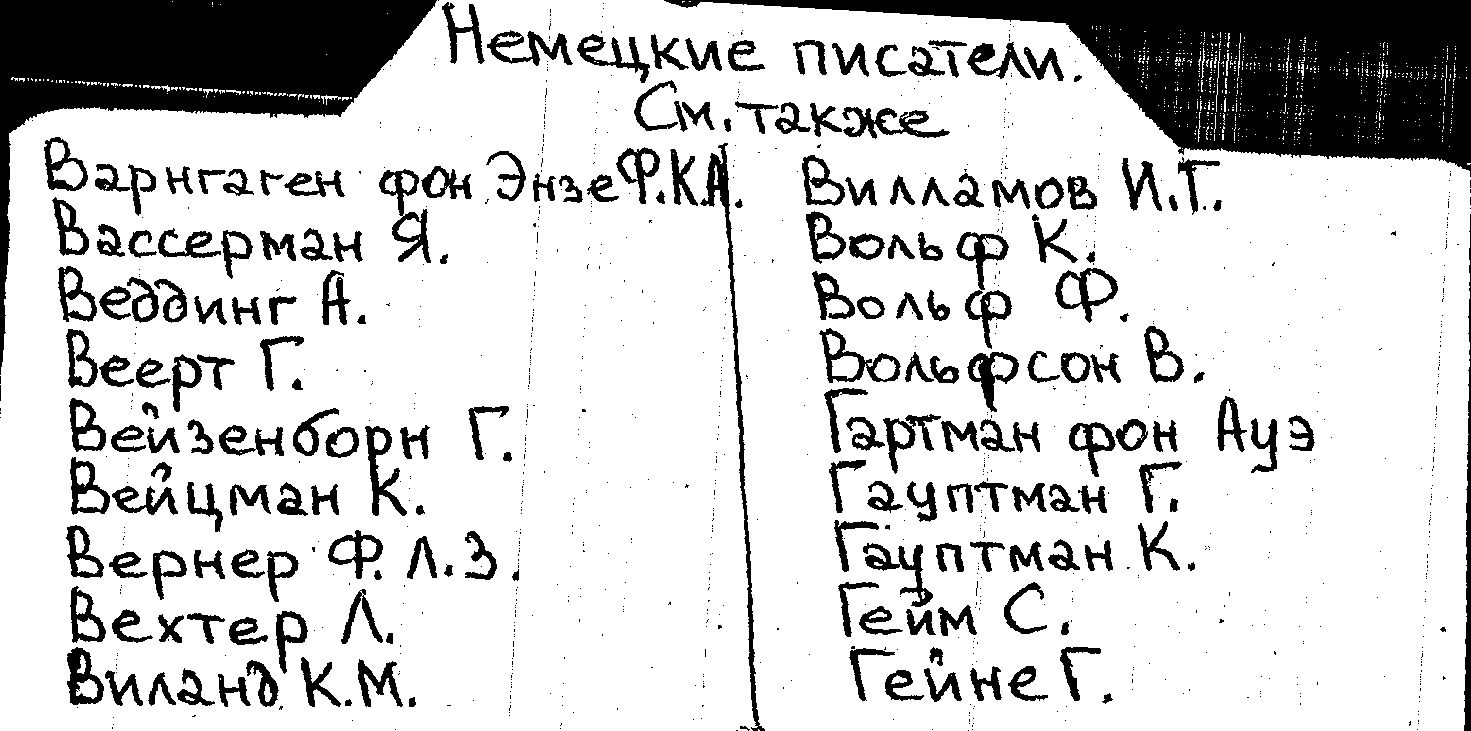 Немецкие писатели.
См. также
Варнгаген фон Энзе Ф.К.А.
Вассерман Я.
Веддинг А.
Веерт Г.
Вейзенборн Г.
Вейцман К.
Вернер Ф.Л.З.
Вехтер Л.
Виланд К.М.
Вилламов И.Г.
Вольф К.
Вольф Ф.
Вольфсон В.
Гартман фон Ауэ
Гауптман Г.
Гауптман К.
Гейм С.
Гейне Г.